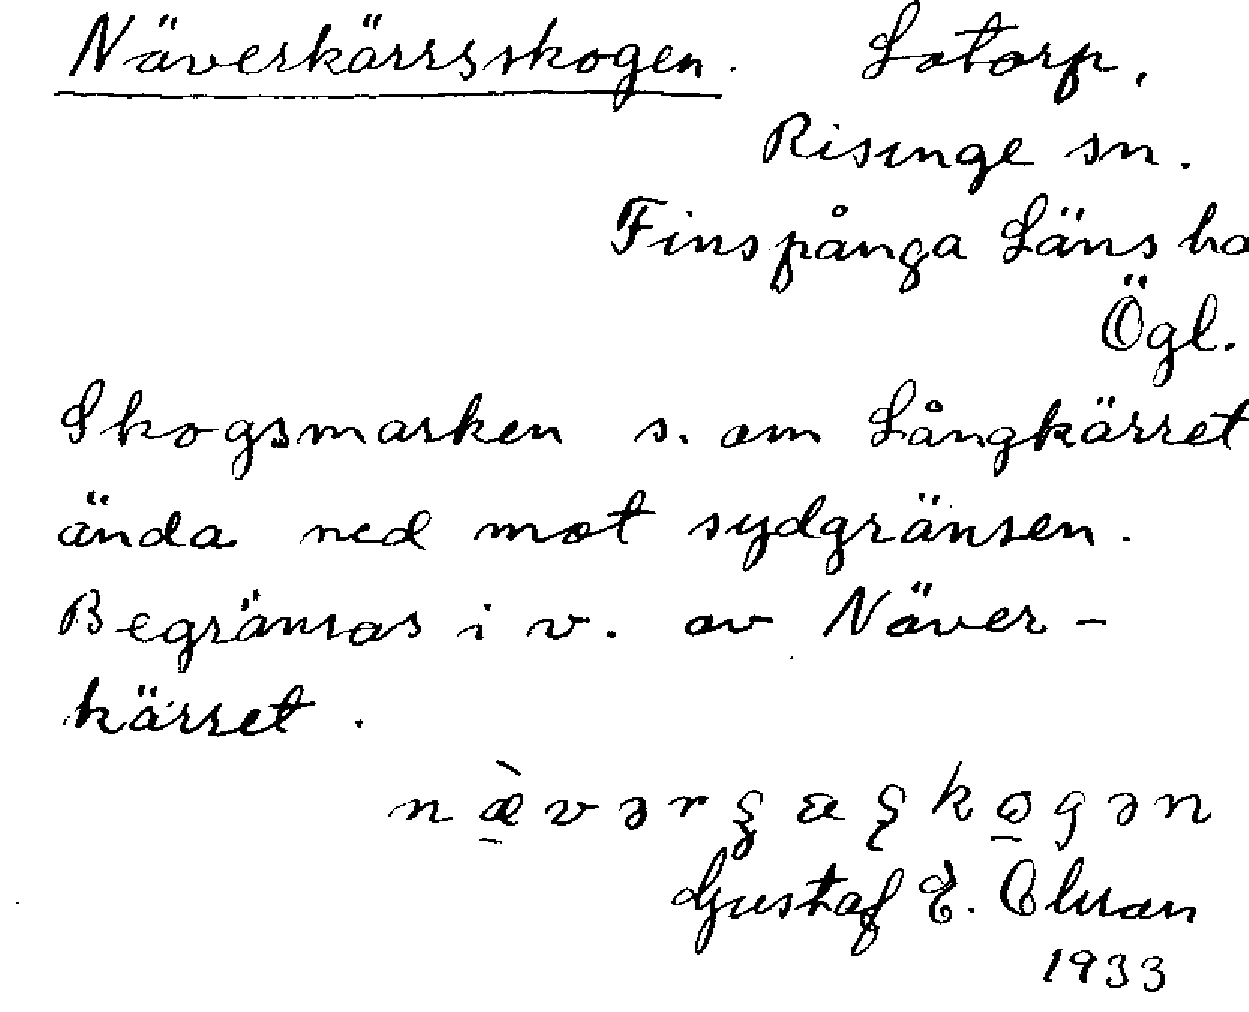 Näverkärrsskogen. Lotorp,
Risinge sn.
Finspånga Läns
Ögl.
Skogsmarken s. om Långkärret
ända ned mot sydgränsen.
Begränsas i v. av Näver-
kärret.
Gustaf E.
1933